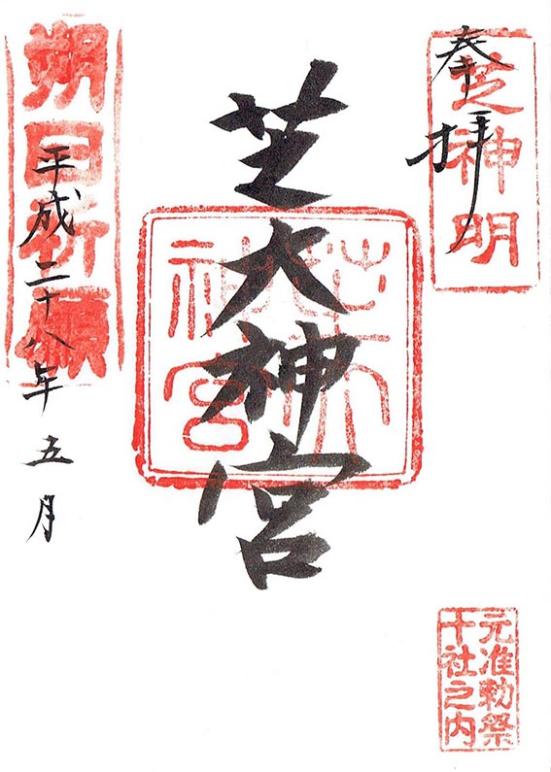 奉拝
芝神明
芝大神宮
芝大神宮
朔日祈願
平成二十八年五月
元准勅祭
十社之内